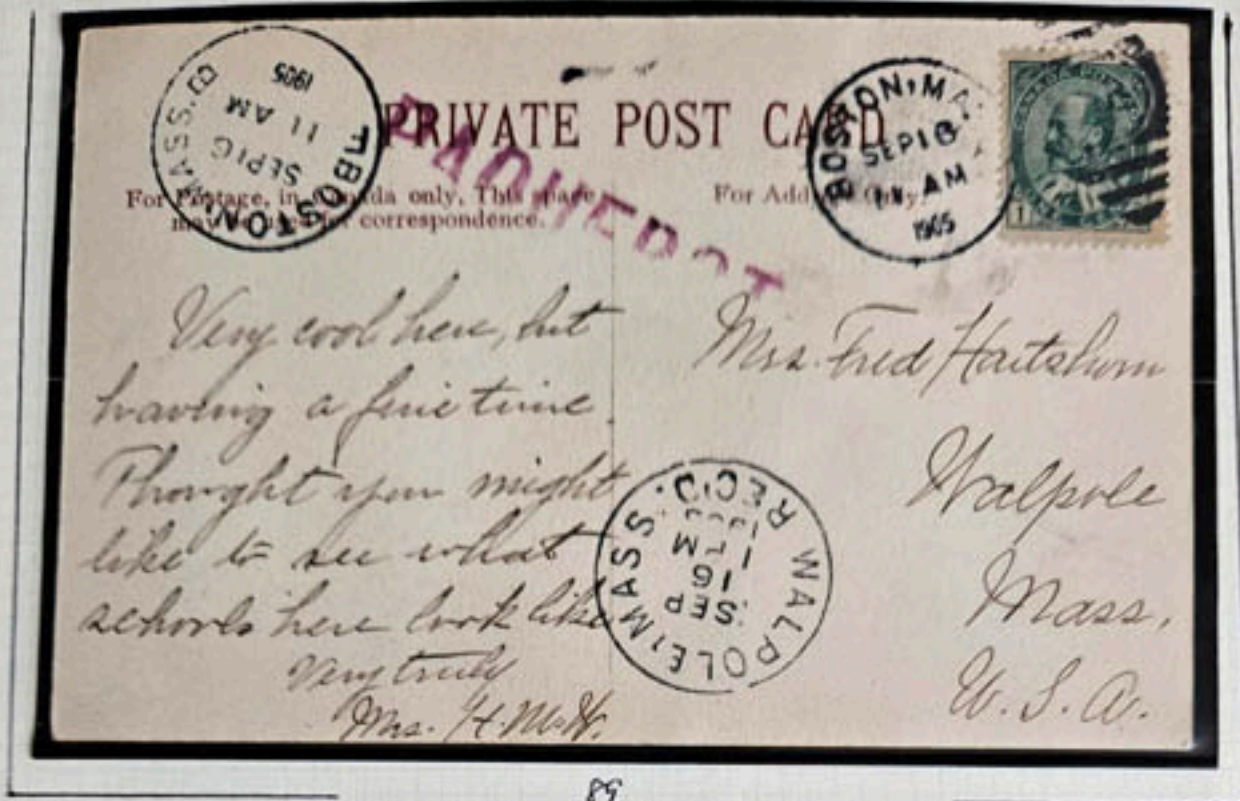 PRIVATE POST CARD
PAQUEBOT
BOSTON, MASS. B
SEP 16
11 AM
1905
BOSTON, MA
SEP 16
11 AM
1905
For Postage, in Canada only, This space
may be used for correspondence.
For Address Only.
1
Very cool here, but
having a fine time.
Thought you might
like to see what
schools here look like.
Very truly
Mrs. H. M. H.
Mrs. Fred Hartshorn
Walpole
Mass.
U. S. A.
WALPOLE, MASS.
SEP
16
1 PM
REC'D.